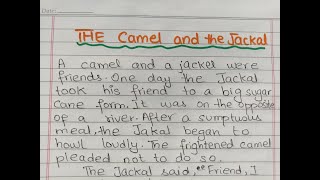 Date:
THE Camel and the Jackal
A camel and a jackel were
friends. One day the Jackal
took his friend to a big sugar
cane form. It was on the opposite
of a river. After a sumptuous
meal, the Jakal began to
howl loudly. The frightened camel
pleaded not to do so.
The Jackal said, "Friend, I